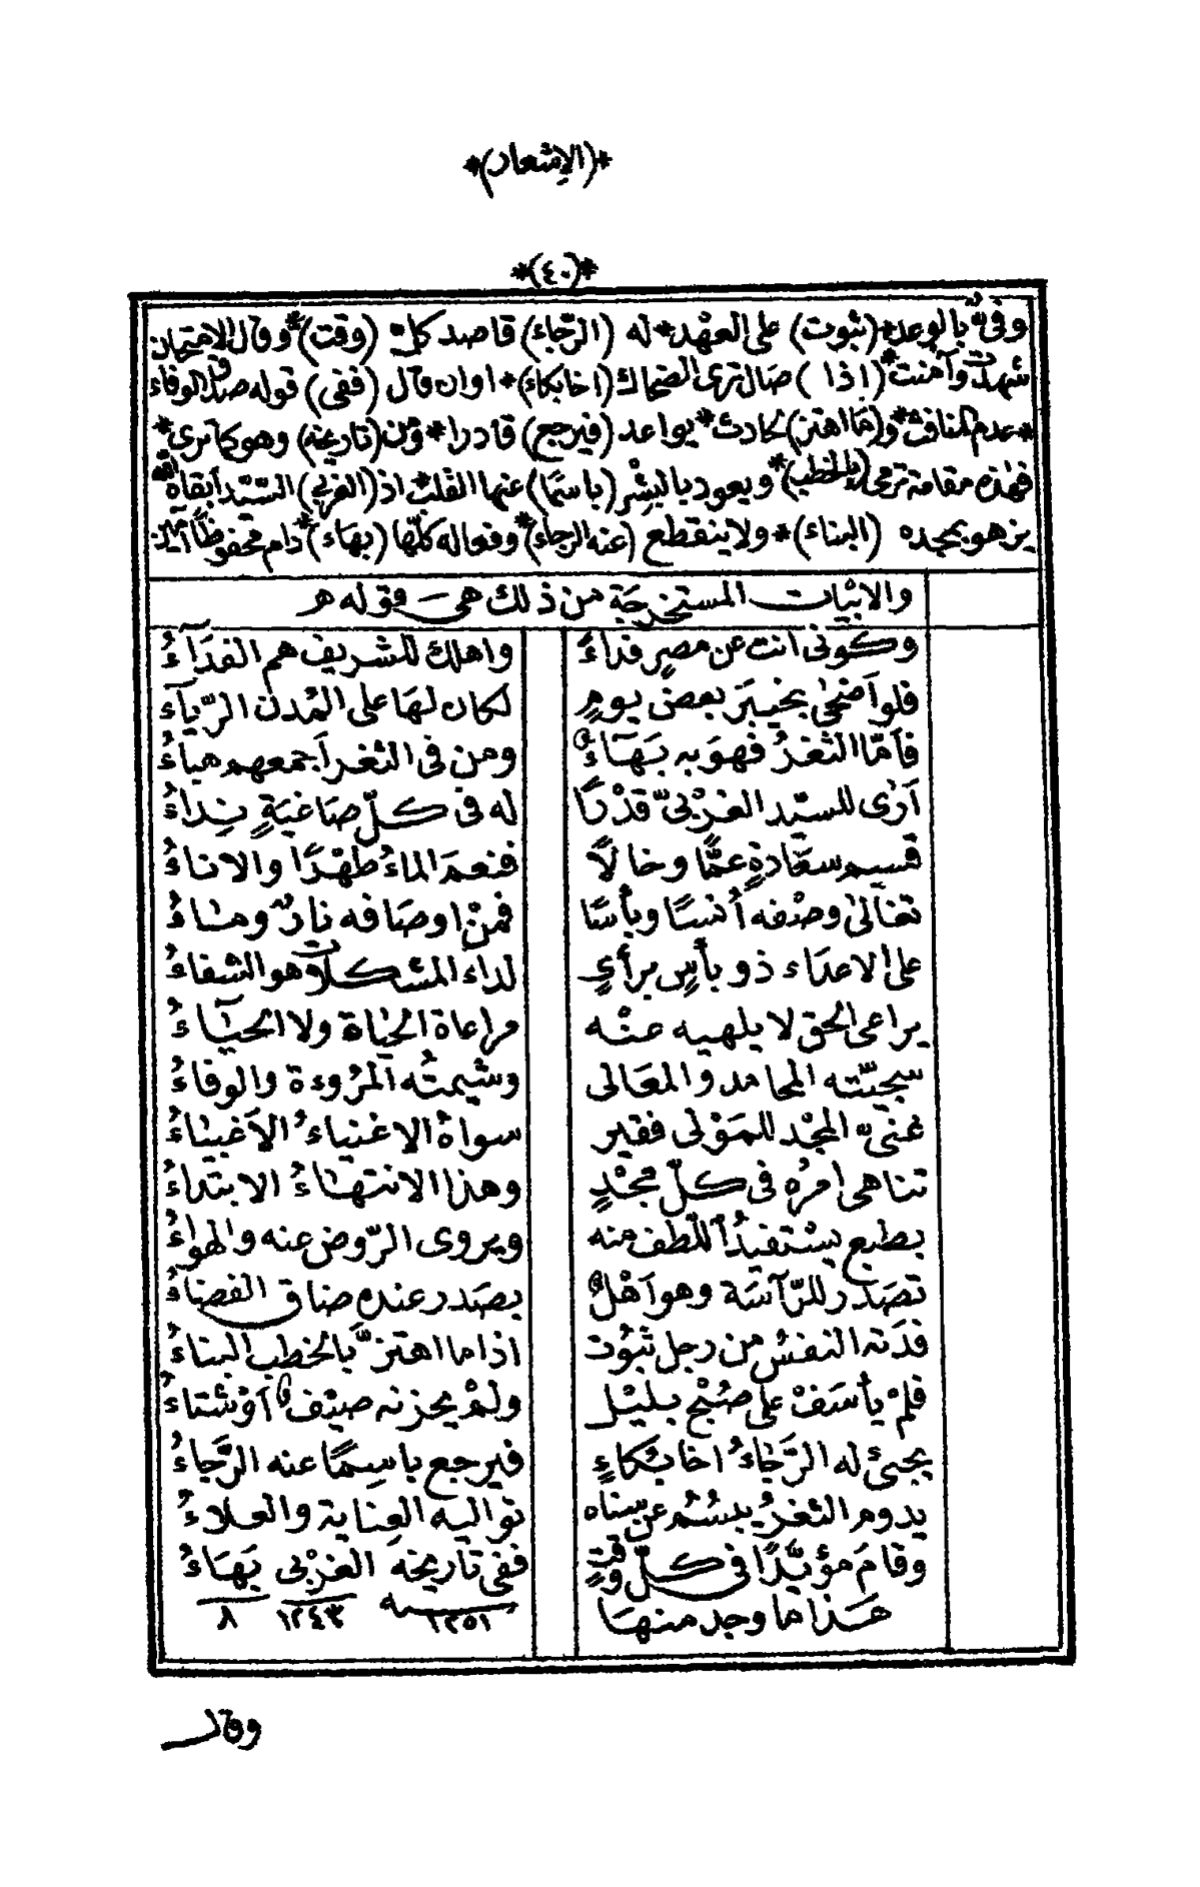 *(الإشعار)*
*(٤٠)*
وفىٌّ بالوعد*(ثبوت) على العهد* له (الرّجاء) قاصد كل* (وقت)* وقال الامتحان
شهدت وآمنت* (اذا) صال ترى الضحاك (اخابكاء)* اوان قال (ففى) قوله صدق الوفاء
*عدم المنافث* و(ما اهتز) لحادث* يواعد (فيرجع) قادرا* ومن (تاريخه) وهو كما ترى*
فهذه مقامة ترمى (بالخطب)* ويعود بالبشر (باسما) عنها القلب* اذ (الغربي) السيّد أبقاه الله
يزهو بمجده (البناء)* ولا ينقطع (عنه الرجاء)* وفعاله كلّها (بهاء)* دام محفوظًا آمين
والابيات المستخرجة من ذلك هى قوله
وكونى انت عن مصرٍ فداءً واهلك للشريف هم الفدآءُ
فلو اَضحىٰ بخيبَرَ بعضَ يومٍ لكان لهَا على المُدن الرّيآءُ
فاَمّا الثغرُ فهوَ به بَهَآءٌ ومن فى الثغر اَجمعهم هباءُ
اَرٰى للسيّد الغربىّ قدْرًا له فى كلّ صَاغيَةٍ نِداءُ
قسيم سعَادةٍ عمًّا وخالاً فنعمَ الماءُ طهْرًا والاناءُ
تغالىٰ وصْفه أُنسًا وبأسَا فمنْ اوصَافه نارٌ وماءُ
على الاعدَاء ذو بأسٍ برأىٍ لداء المشكلات هو الشفاءُ
يراعى الحق لا يلهيه عنْه مراعاة الحيَاة ولا الحيَآءُ
سجيّته المحامد والمعَالى وشيمتُه اَلمرُوءة والوفاءُ
غنىّ المجْد للمَوْلى فقير سواهُ الاغنياءُ الاَغبيَاءُ
تناهى امرُه فى كلّ مجْدٍ وهذا الانتهَاءُ الابتداءُ
بطبع يسْتفيدُ اللّطف منه ويروى الرّوض عنه والهواءُ
تصَدّر للرّآسَة وهو اَهْلٌ بصَدر عنده ضاق الفضَاءُ
فدَته النفسُ من رجل ثبُوت اذا ما اهتزّ بالخطب البناءُ
فلمْ يأسَفْ على صُبْح بليْل ولمْ يحزنه صيْفٌ اَوْ شتاءُ
يجىئ له الرَّجَاءُ اخا بُكاءٍ فيرجع باسِمًا عنه الرَّجَاءُ
يدوم الثغرُ يبسُمُ عن سناه تواليه العِناية والعلاءُ
وقامَ مؤيّدًا فى كلّ وقتٍ ففى تاريخه الغرْبى بَهَاءُ
هَذا ما وجد منهَا ١٢٥١ ١٢٤٣ ٨
وقال